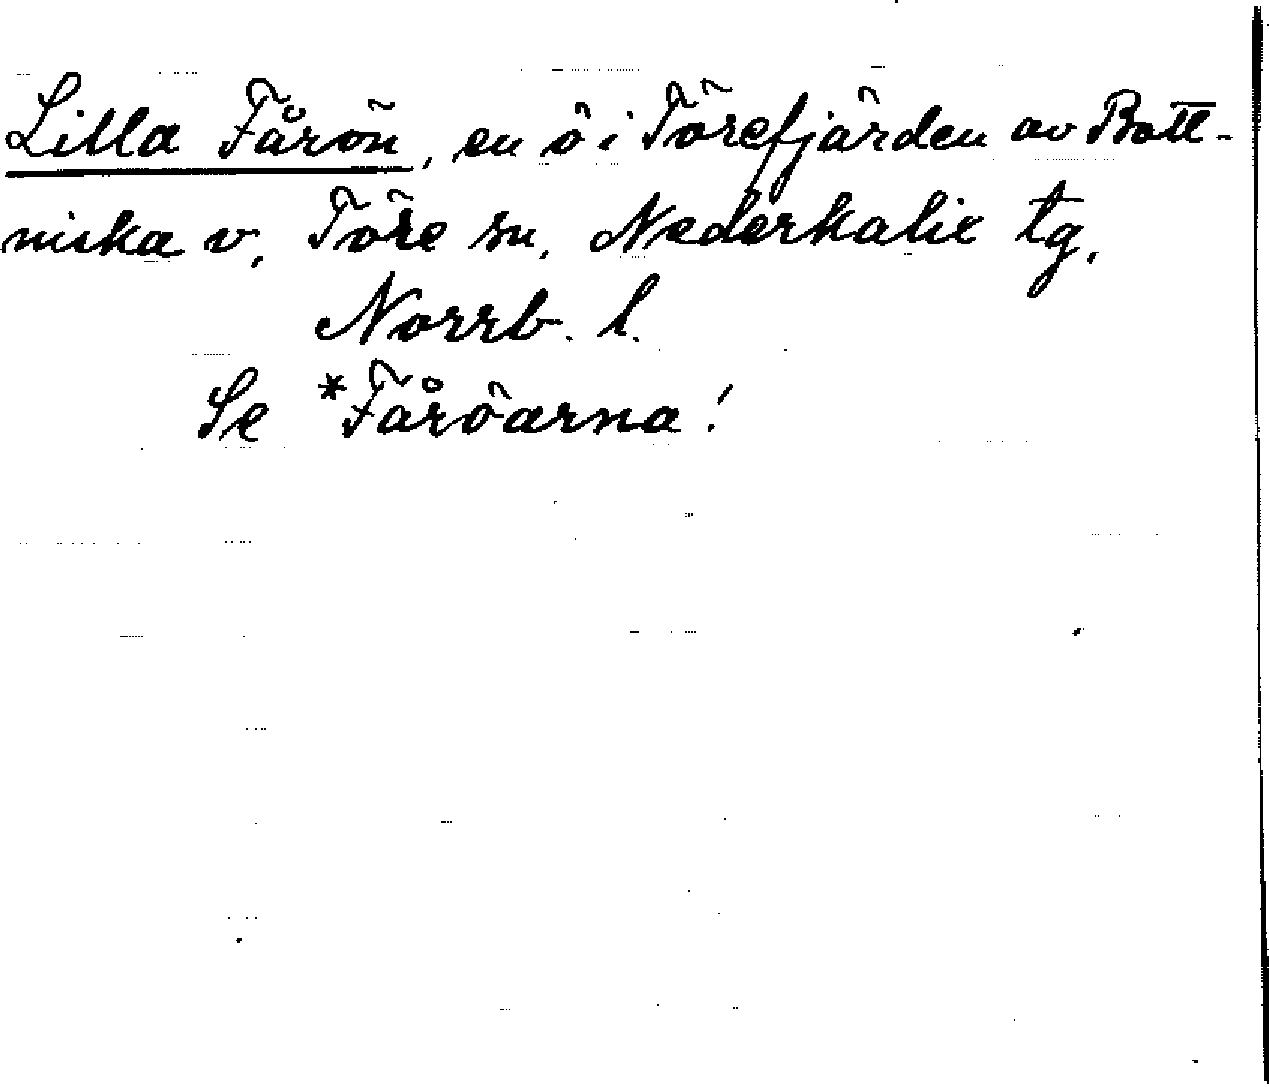 Lilla Fårön, en ö i Törefjärden av Bott-
niska v., Töre sn, Nederkalix tg,
Norrb. l.
Se *Fåröarna!